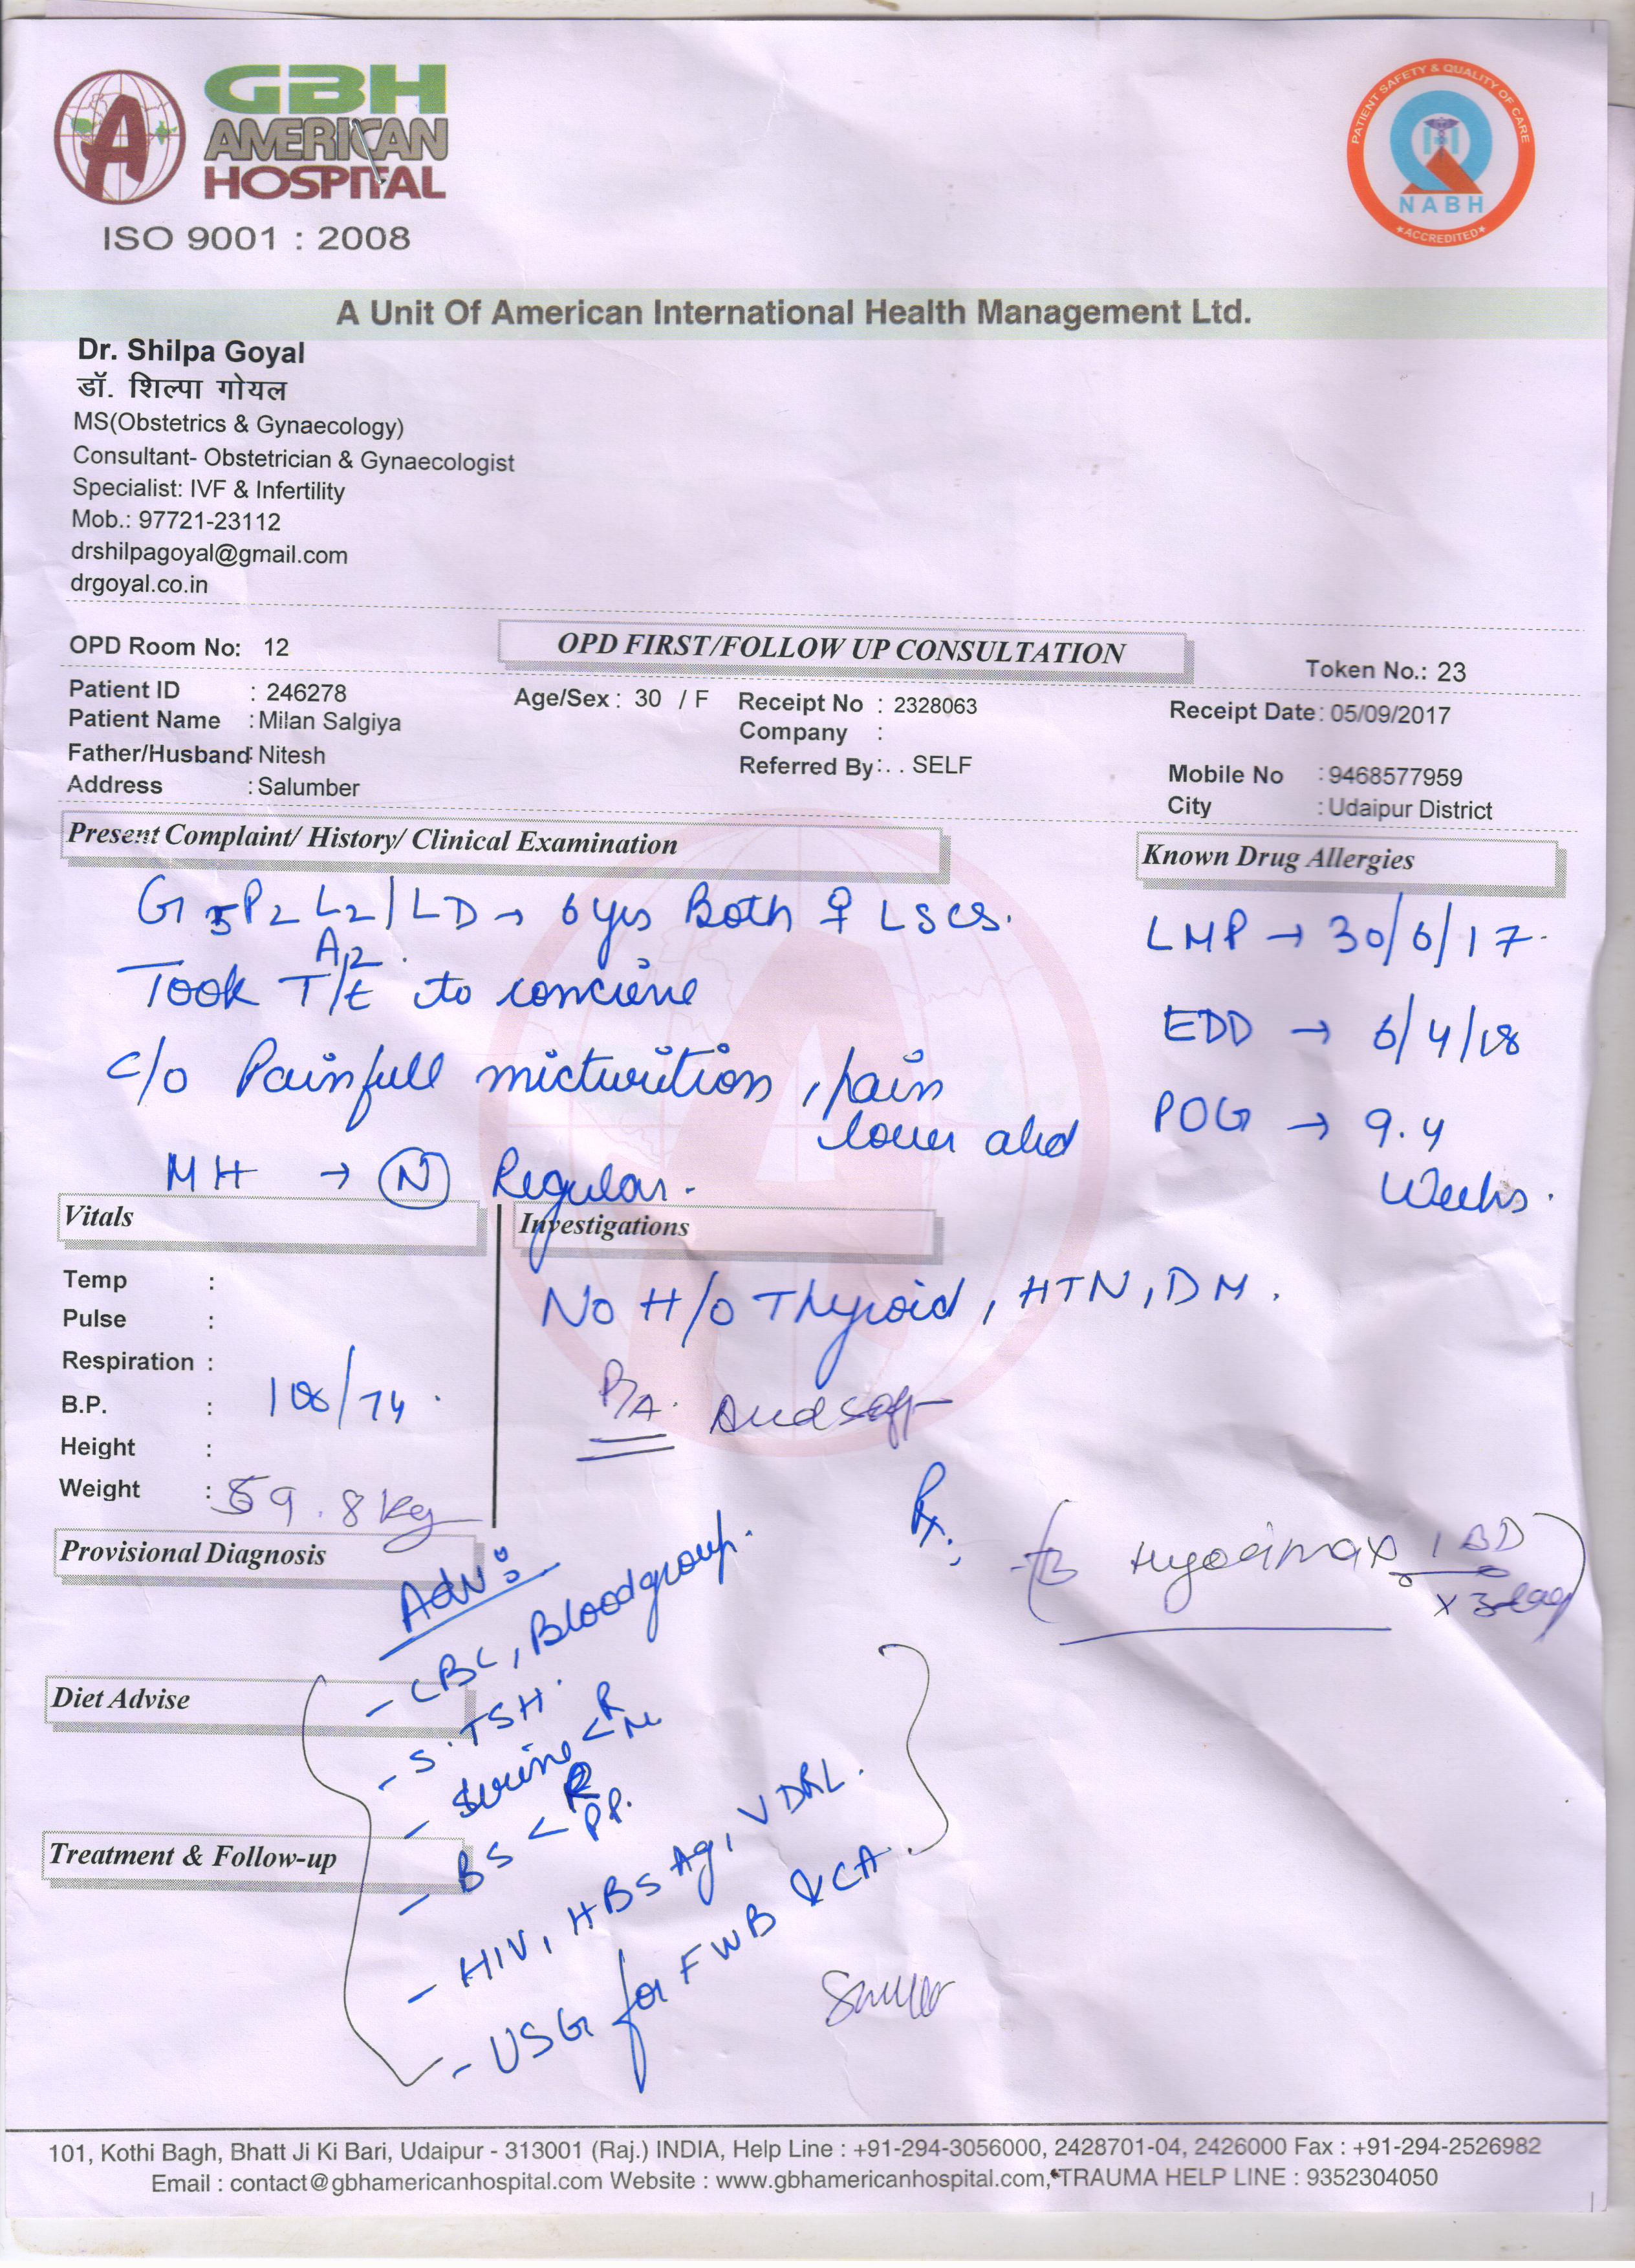 GBH
AMERICAN
HOSPITAL
ISO 9001 : 2008
PATIENT SAFETY & QUALITY OF CARE
NABH
ACCREDITED
A Unit Of American International Health Management Ltd.
Dr. Shilpa Goyal
डॉ. शिल्पा गोयल
MS(Obstetrics & Gynaecology)
Consultant- Obstetrician & Gynaecologist
Specialist: IVF & Infertility
Mob.: 97721-23112
drshilpagoyal@gmail.com
drgoyal.co.in
OPD Room No: 12 OPD FIRST/FOLLOW UP CONSULTATION Token No.: 23
Patient ID : 246278 Age/Sex : 30 / F Receipt No : 2328063 Receipt Date: 05/09/2017
Patient Name : Milan Salgiya Company :
Father/Husband: Nitesh Referred By:. . SELF Mobile No : 9468577959
Address : Salumber City : Udaipur District
Present Complaint/ History/ Clinical Examination Known Drug Allergies
G5P2L2/LD → 6yrs Both ♀ LSCS. LMP → 30/6/17.
A2
Took T/t to concieve EDD → 6/4/18
c/o Painfull micturition, pain POG → 9.4
lower abd Weeks.
MH → (N) Regular.
Vitals Investigations
Temp : No H/o Thyroid, HTN, DM.
Pulse :
Respiration :
B.P. : 108/74. P/A. soft
Height :
Weight : 59.8 kg Rx.
Provisional Diagnosis
Adv: 1 BD
x 3 day
- CBC, Bloodgroup.
Diet Advise
- S. TSH.
- urine < R M
- BS < R PP.
Treatment & Follow-up
- HIV, HBsAg, VDRL.
- USG for FWB & CA.
101, Kothi Bagh, Bhatt Ji Ki Bari, Udaipur - 313001 (Raj.) INDIA, Help Line : +91-294-3056000, 2428701-04, 2426000 Fax : +91-294-2526982
Email : contact@gbhamericanhospital.com Website : www.gbhamericanhospital.com, TRAUMA HELP LINE : 9352304050